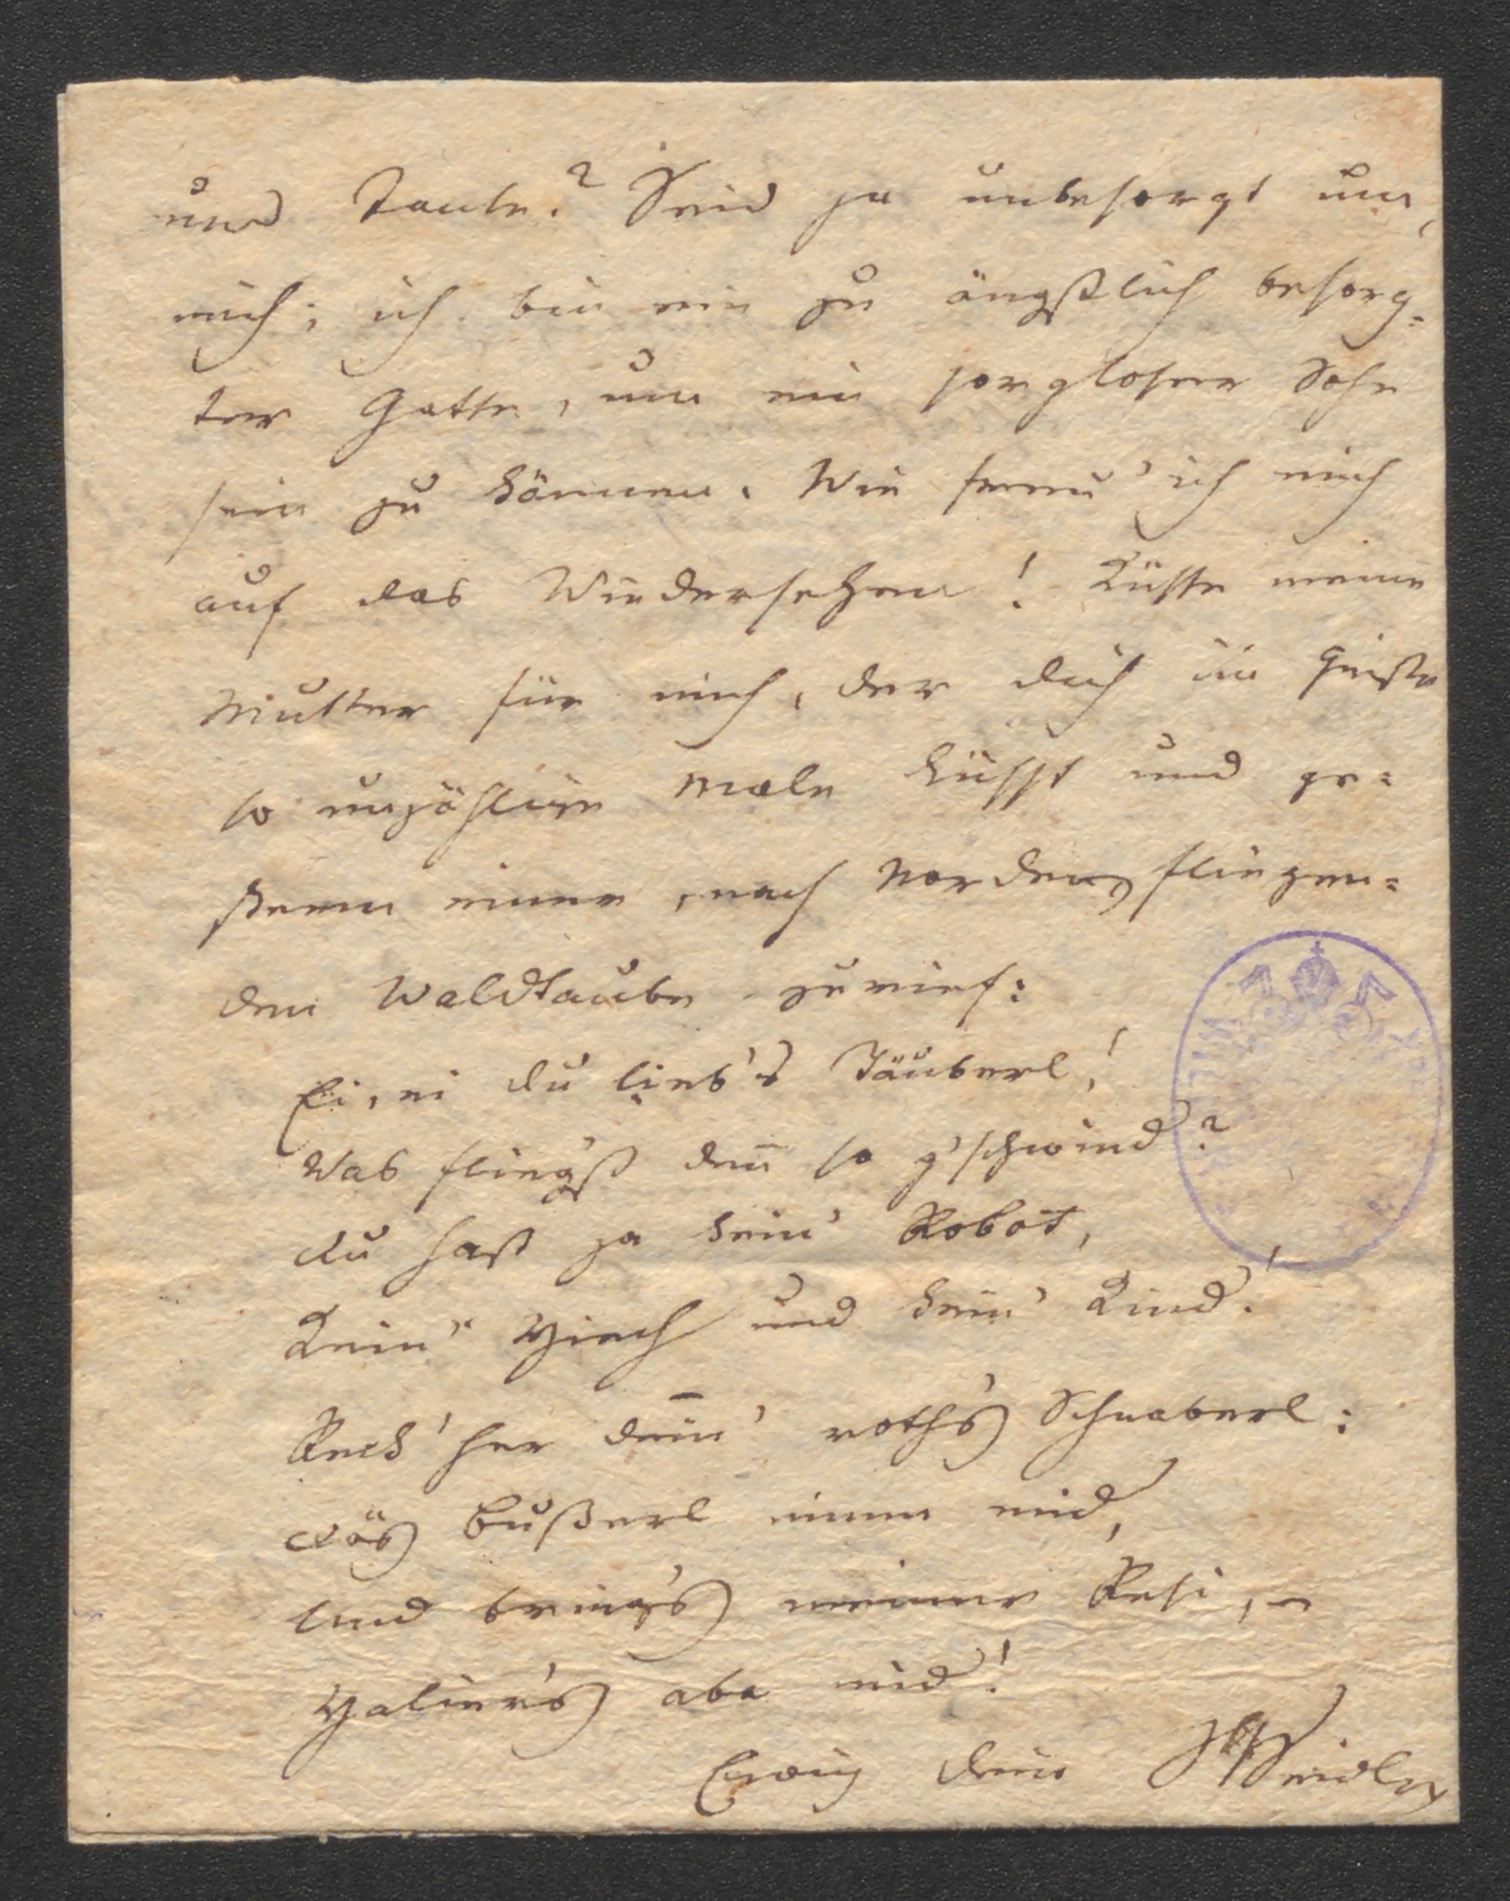 und Tante? Seid ja unbesorgt um
mich; ich bin ein zu ängstlich besorg=
ter Gatte, um ein sorgloser Sohn
sein zu können. Wie freu' ich mich
auf das Wiedersehen! Küsse meine
Mutter für mich, der dich im Geiste
so unzählige Male küsst und ge=
stern einer, nach Norden, fliegen=
den Waldtaube zurief:
Ei, ei du lieb's Täuberl!
Was fliegst deñ so g'schwind?
Du hast ja kein' Robot,
Kein' Viech und kein' Kind!
Reck' her dein' roth's Schnaberl:
Dös Bußerl nimm mid,
Und bring's meiner Resi,
Valier's aba nid!
Ewig dein Seidl